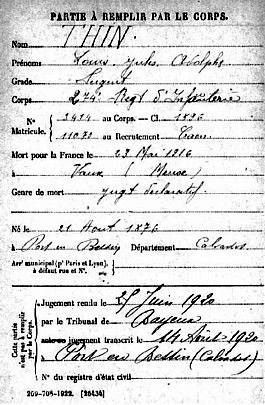 PARTIE À REMPLIR PAR LE CORPS.
Nom THIN.
Prénoms Louis Jules Adolphe
Grade Sergent
Corps 274e Regt d'Infanterie
N° 3414 au Corps. — Cl. 1896
Matricule. 1107 au Recrutement Caen
Mort pour la France le 23 Mai 1916
à Vaux (Meuse)
Genre de mort Jugt déclaratif
Né le 21 Août 1876
à Port en Bessin Département Calvados
Arrt municipal (pr Paris et Lyon),
à défaut rue et N°.
Cette partie n'est pas à remplir par le Corps.
Jugement rendu le 25 Juin 1920
par le Tribunal de Bayeux
jugement transcrit le 14 Août 1920
à Port en Bessin (Calvados)
N° du registre d'état civil
269-708-1922. [26434]